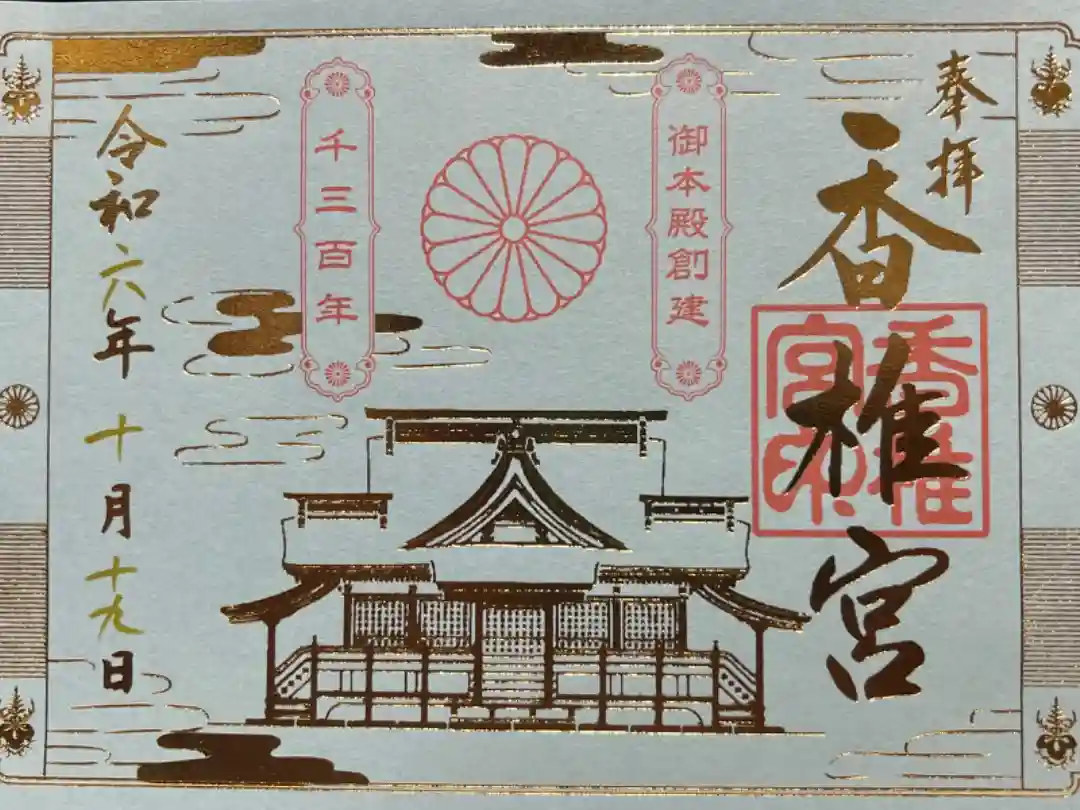 奉拝
香椎宮
香椎宮印
御本殿創建
千三百年
令和六年十月十九日